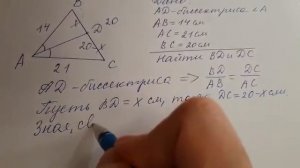 B
14
x
D
20
20-x
A
21
C
Дано
AD-биссектриса ∠A
AB = 14см
AC = 21см
BC = 20см
Найти BD и DC
AD - биссектриса ⇒ BD/AB = DC/AC
Пусть BD = x см, тогда DC = 20-x см
Зная, св